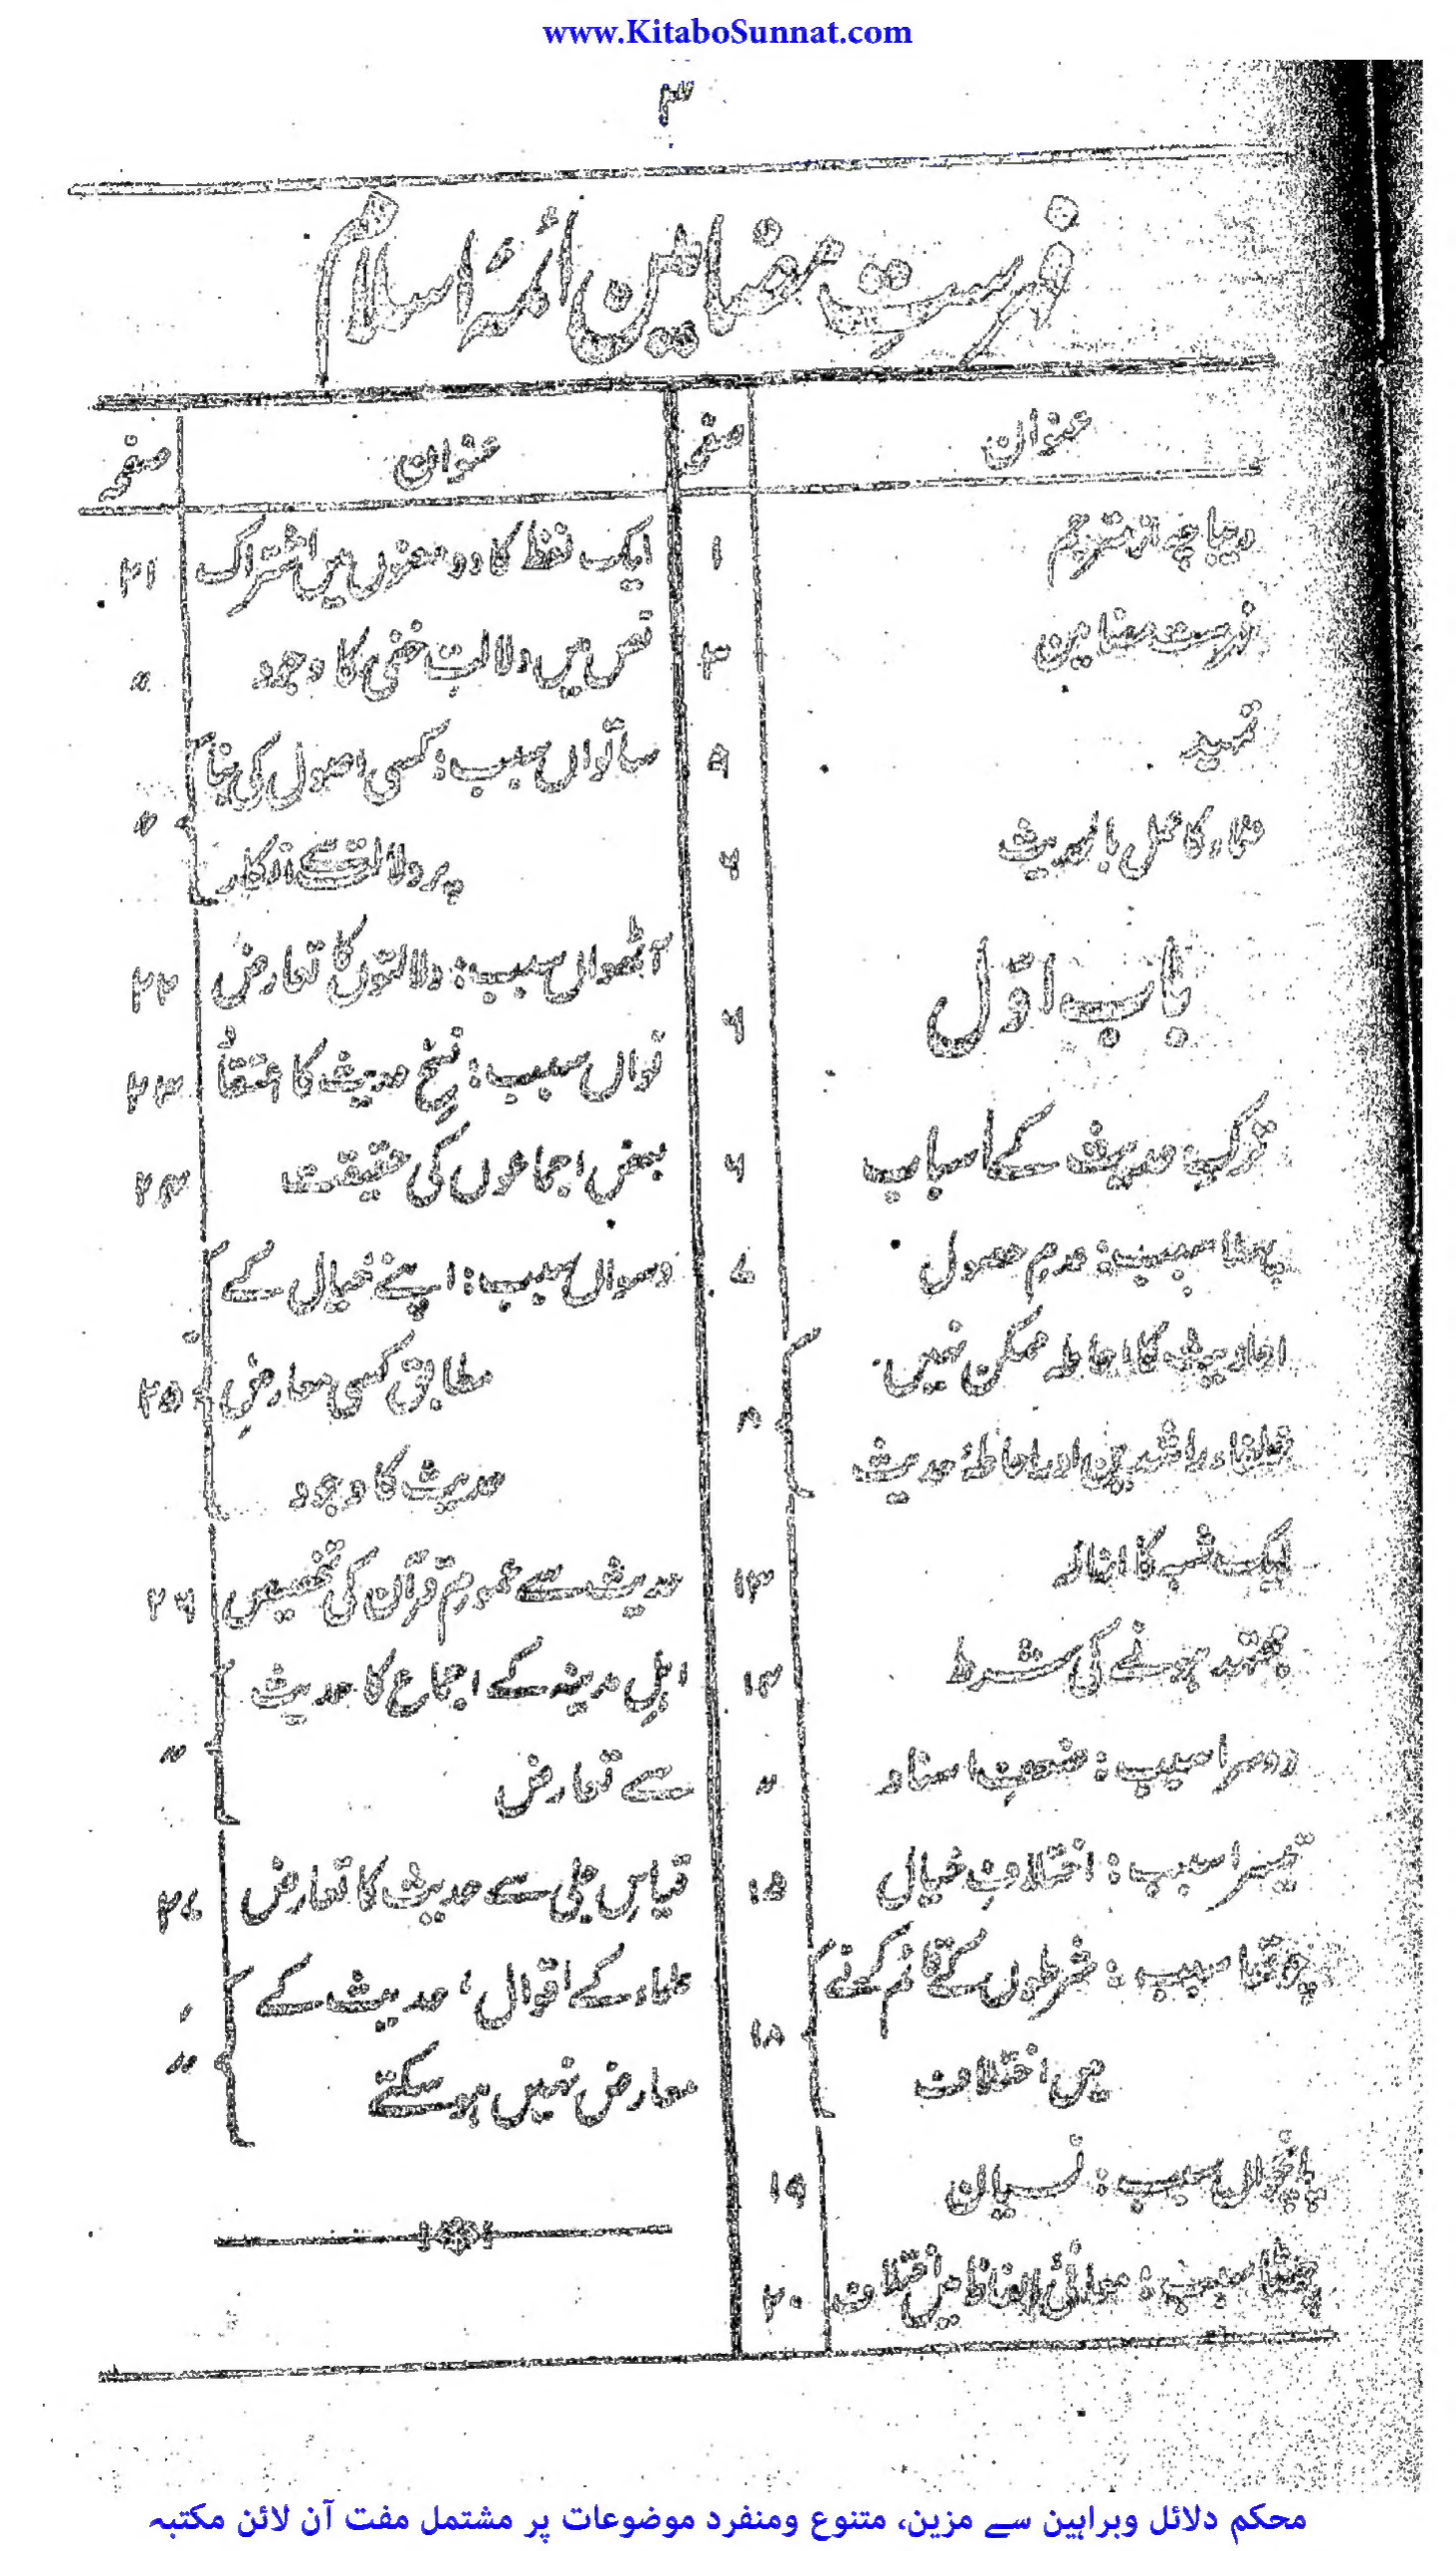 www.KitaboSunnat.com
۳
فہرستِ مضامین ائمۂ اسلام
عنوان صفحہ
دیباچہ از مترجم ۱
فہرست مضامین ۳
تمہید ۵
علماء کا عمل بالحدیث ۶
باب اوّل ۶
ترکِ حدیث کے اسباب ۶
پہلا سبب : عدم حصول ۷
احادیث کا احاطہ ممکن نہیں
خلفاء راشدین اور احاطۂ حدیث ۸
ایک شبہ کا ازالہ ۱۳
مجتہد ہونے کی شرط ۱۴
دوسرا سبب : ضعفِ اسناد 〃
تیسرا سبب : اختلافِ خیال ۱۵
چوتھا سبب : شرطوں کے قائم کرنے
میں اختلاف ۱۸
پانچواں سبب : نسیان ۱۹
چھٹا سبب : معانیٔ الفاظ میں اختلاف ۲۰
عنوان صفحہ
ایک لفظ کا دو معنوں میں اشتراک ۲۱
نص میں دلالتِ خفی کا وجود 〃
ساتواں سبب : کسی اصول کی بنا
پر دلالت سے انکار 〃
آٹھواں سبب : دلالتوں کا تعارض ۲۲
نواں سبب : نسخِ حدیث کا اعتقاد ۲۳
بعض اجماعوں کی حقیقت ۲۴
دسواں سبب : اپنے خیال کے
مطابق کسی معارضِ ۲۵
حدیث کا وجود
حدیث سے عمومِ قرآن کی تخصیص ۲۶
اہلِ مدینہ کے اجماع کا حدیث
سے تعارض 〃
قیاسِ جلی سے حدیث کا تعارض ۲۷
علماء کے اقوال، حدیث کے
معارض نہیں ہو سکتے 〃
محکم دلائل وبراہین سے مزین، متنوع ومنفرد موضوعات پر مشتمل مفت آن لائن مکتبہ